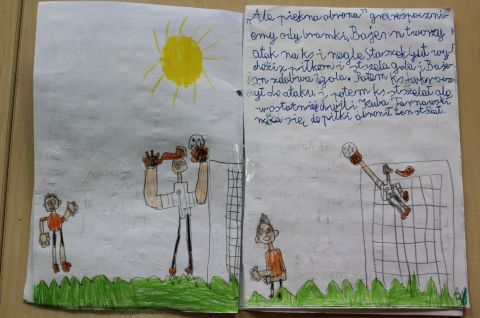 "Ale piękna obrona" grę rozpoczni
omy od bramki, Bajern tworzy
atak na ks i nagle Staszek
z piłkom i strzela gola i Baje-
rn zdobywa 1 gola. Potem ks
do ataku i potem ks strzelał ale
w ostatniej chwili Kuba Tarnawski
rzuca się do piłki obronił ten strzał.